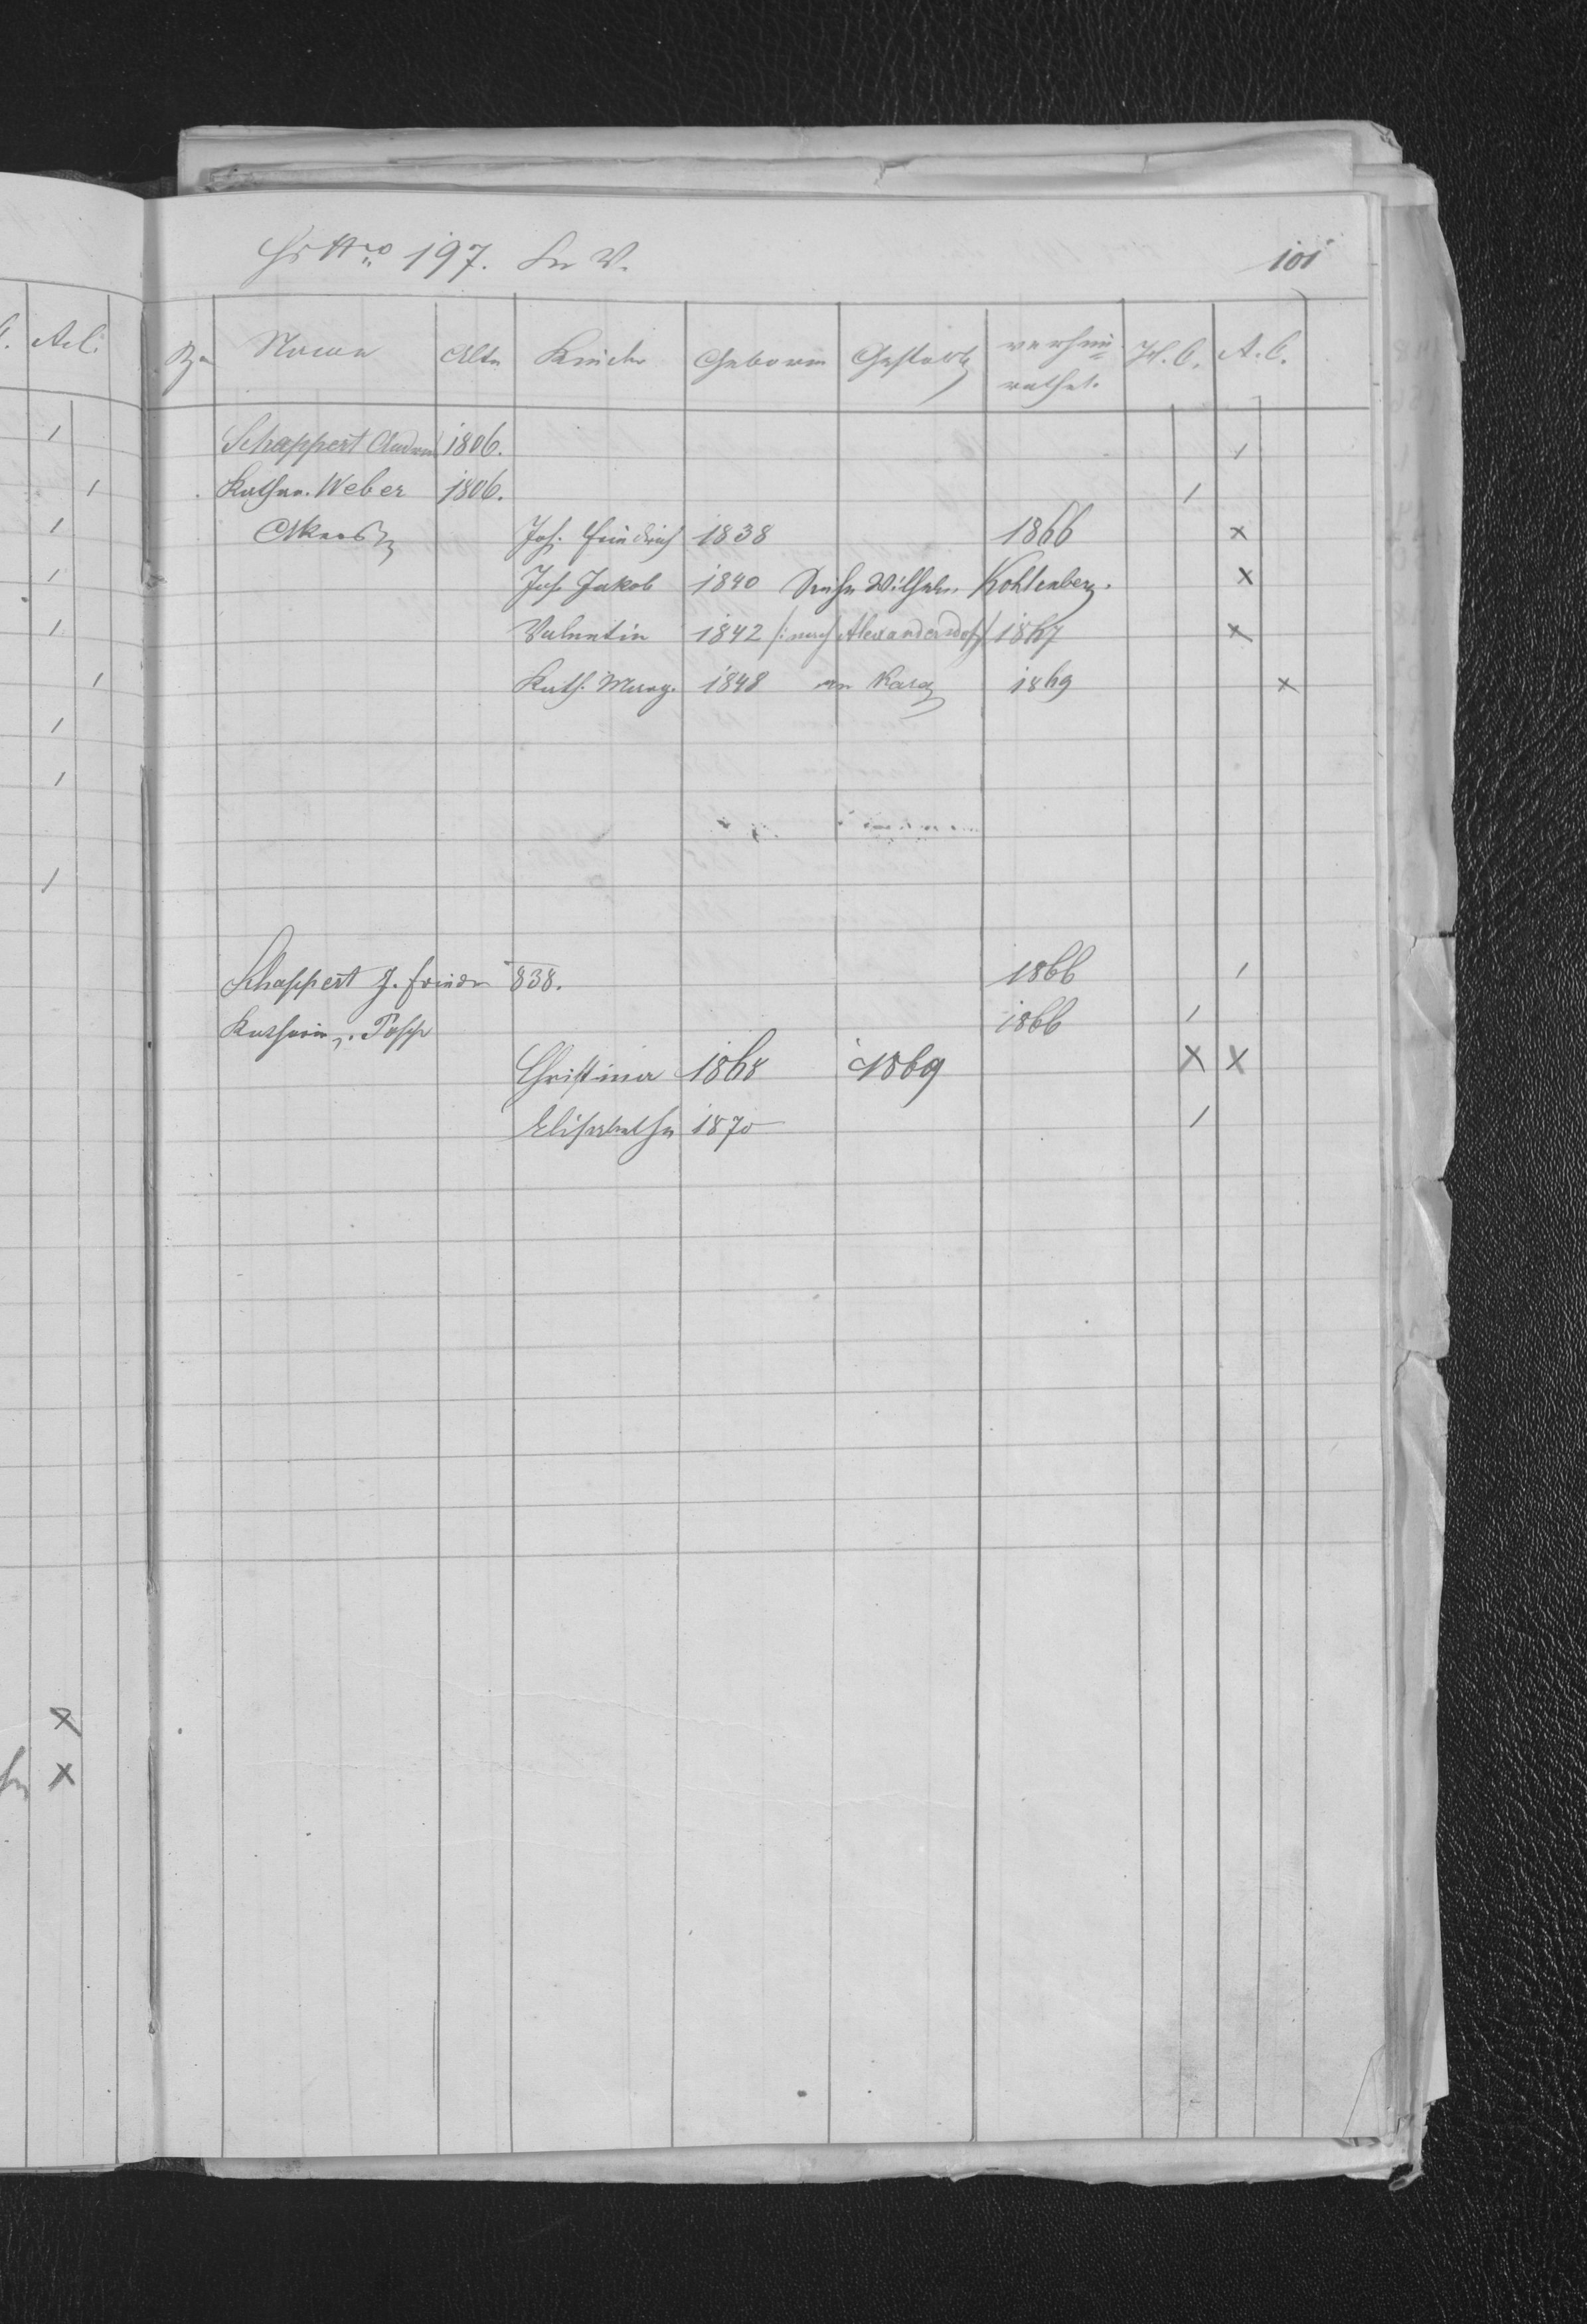 Hs Nro 197. 101
Name Alter Kinder Geboren Gestorb verhei=
rathet. H.C. A.C.
Schappert Andreas 1806. 1
Kathar. Weber 1806. 1
Joh. Friedrich 1838 1866 x
Joh. Jakob 1840 Siehe Wilhelm Kohlenberg. x
Valentin 1842 /: nach Alexandersdorf 1867 x
Kath. Marg. 1848 an Karg 1869 x
Schappert J. Friedr 838. 1866 1
Katharin. Popp 1866 1
Christina 1868 1869 x x
Elisabetha 1870 1